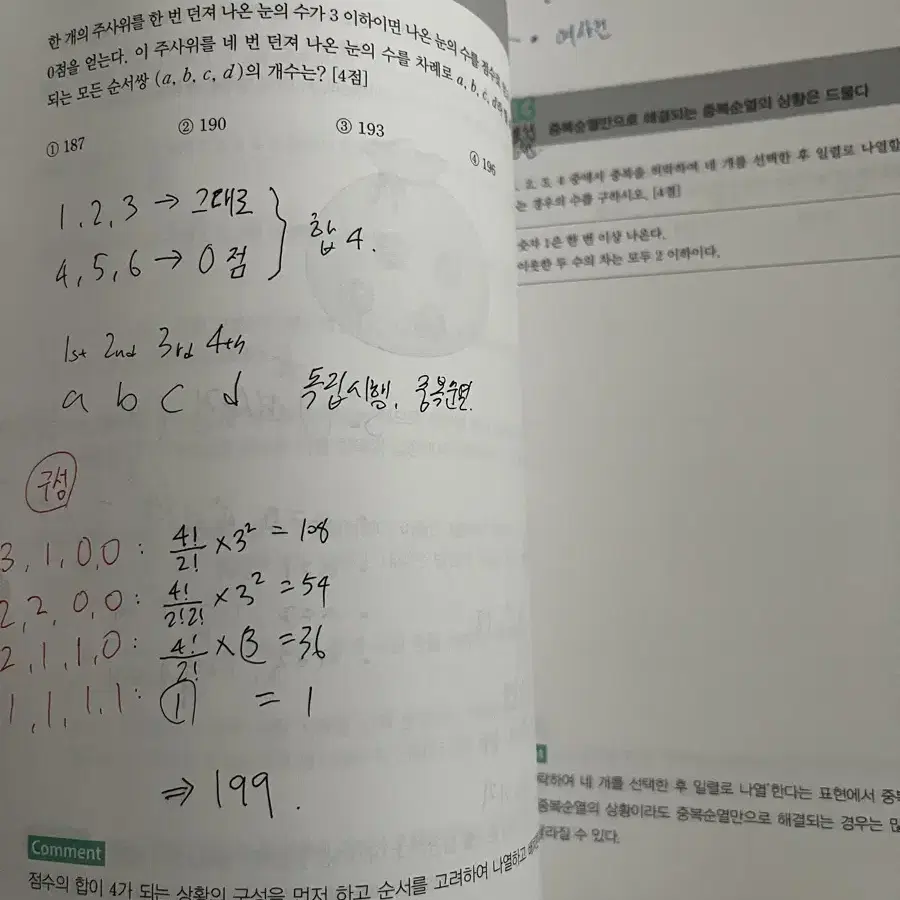 한 개의 주사위를 한 번 던져 나온 눈의 수가 3 이하이면 나온 눈의 수를 점수로
0점을 얻는다. 이 주사위를 네 번 던져 나온 눈의 수를 차례로 a, b, c, d라
되는 모든 순서쌍 (a, b, c, d)의 개수는? [4점]
① 187 ② 190 ③ 193 ④ 196
1, 2, 3 → 그대로
4, 5, 6 → 0점
합 4.
1st 2nd 3rd 4th
a b c d 독립시행, 중복순열.
구성
3, 1, 0, 0 : 4!/2! × 3² = 108
2, 2, 0, 0 : 4!/2!2! × 3² = 54
2, 1, 1, 0 : 4!/2! × 3 = 36
1, 1, 1, 1 : 1 = 1
⇒ 199.
Comment
점수의 합이 4가 되는 상황의 구성을 먼저 하고 순서를 고려하여 나열하고
여사건
중복순열만으로 해결되는 중복순열의 상황은 드물다
, 2, 3, 4 중에서 중복을 허락하여 네 개를 선택한 후 일렬로 나열할
는 경우의 수를 구하시오. [4점]
숫자 1은 한 번 이상 나온다.
이웃한 두 수의 차는 모두 2 이하이다.
락하여 네 개를 선택한 후 일렬로 나열한다는 표현에서 중복
중복순열의 상황이라도 중복순열만으로 해결되는 경우는 많
달라질 수 있다.